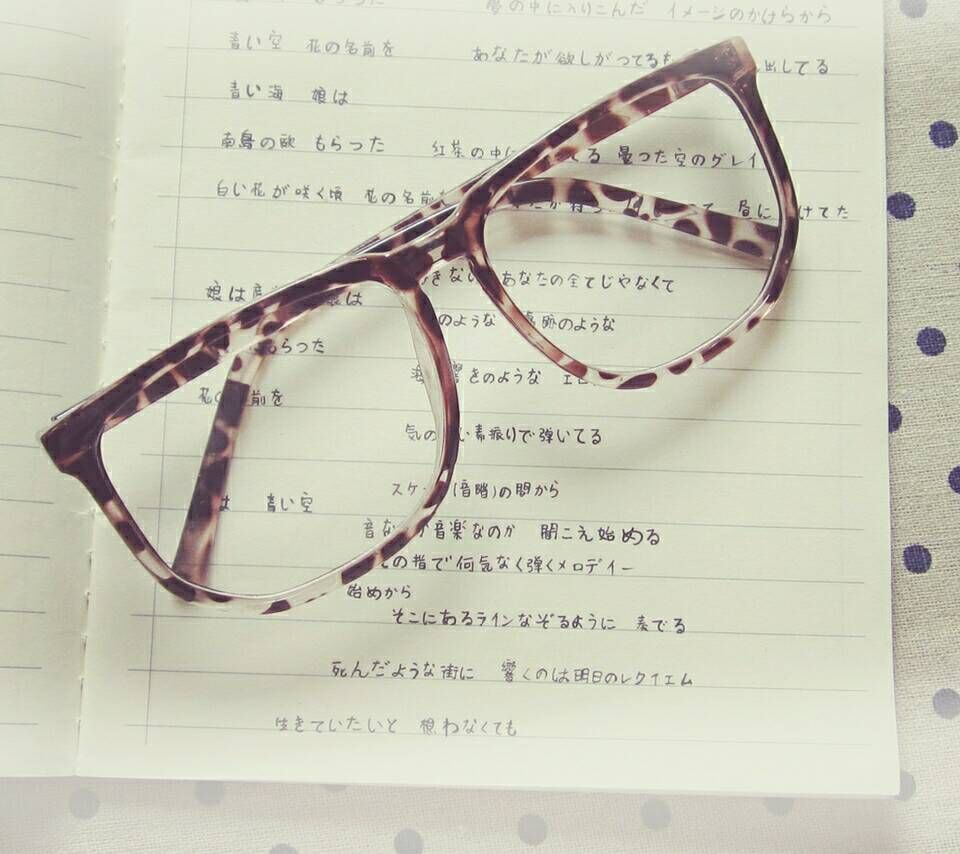 もらった 夢の中に入りこんだ イメージのかけらから
青い空 花の名前を あなたが欲しがってる 出してる
青い海 娘は
南島の歌 もらった 紅茶の中に てる 曇った空のグレイ
白い花が咲く頃 花の名前 昼に けてた
きない あなたの全てじゃなくて
娘は 娘は
のような のような
もらった
響きのような
花の 前を
気の い素振りで弾いてる
スケー (音階)の間から
は 青い空
音な 音楽なのか 聞こえ始める
の指で何気なく弾くメロディー
始めから
そこにあるラインなぞるように 奏でる
死んだような街に 響くのは明日のレクイエム
生きていたいと 想わなくても